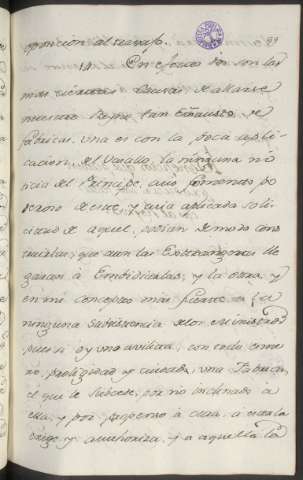 oposicion al travajo. 89
14 En efecto dos son las
mas ciertas Causas de allarse
nuestro Reyno tan exausto de
fabricas. una es con la poca aplicacion
del Vasallo, la ninguna noticia
del Principe, cuio fomento, poderio
de este, y una aplicada solicitud
de aquel, podian de modo construirlas,
que aun los Extrangeros llegaran
à Embidiarlas; y la otra, y
en mi concepto mas fuerte es la
ninguna Subsistencia de los Ministros
pues si oy uno auxilia, con todo esmero,
prolixidad y cuidado, una Fabrica,
el que le Subcede, por no inclinado à
ella, y por propenso à otra, à esta la
erige y authoriza, y à aquella la